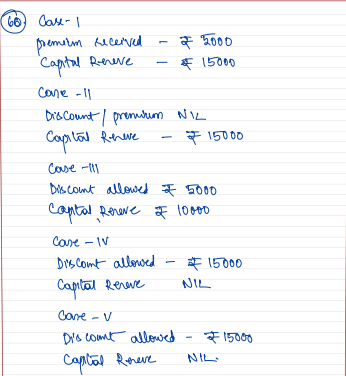 60. Case - I
premium received - ₹ 5000
Capital Reserve - ₹ 15000
Case - II
Discount / premium NIL
Capital Reserve - ₹ 15000
Case - III
Discount allowed ₹ 5000
Capital Reserve ₹ 10000
Case - IV
Discount allowed - ₹ 15000
Capital Reserve NIL
Case - V
Discount allowed - ₹ 15000
Capital Reserve NIL.